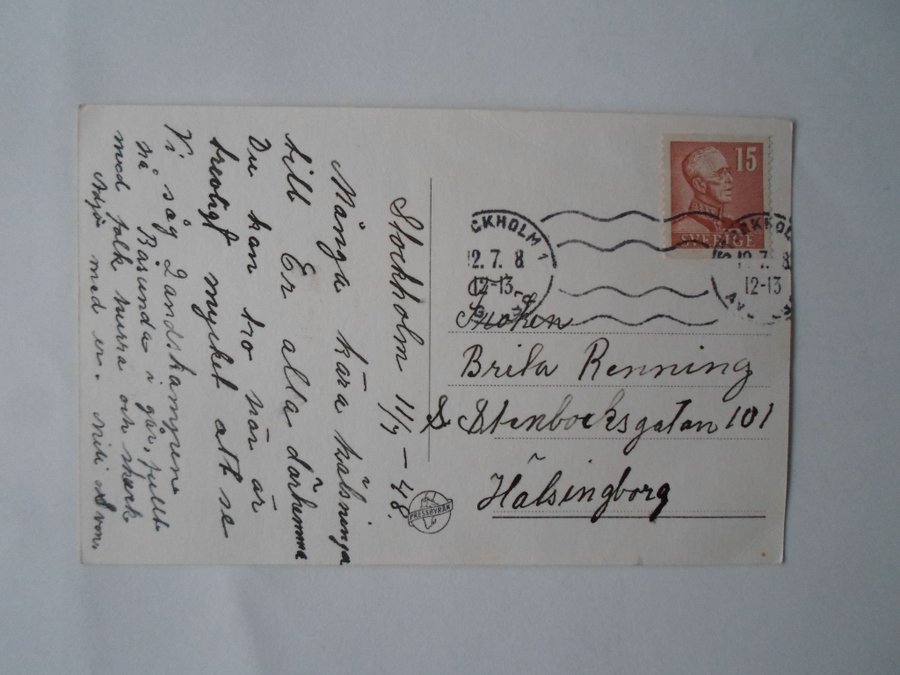 Stockholm 11/7 – 48.
Många kära hälsninga
till Er alla därhemma
Du kan tro här är
trevligt mycket att se
Vi såg Landskampen
på Råsunda i går, fullt
med folk hurra och skrek
Adjö med er.
15
SVERIGE
OCKHOLM 1
12.7.8
12-13
STOCKHOLM
12.7.8
12-13
Fröken
Brita Renning
S. Stenbocksgatan 101
Hälsingborg
PRESSBYRÅN